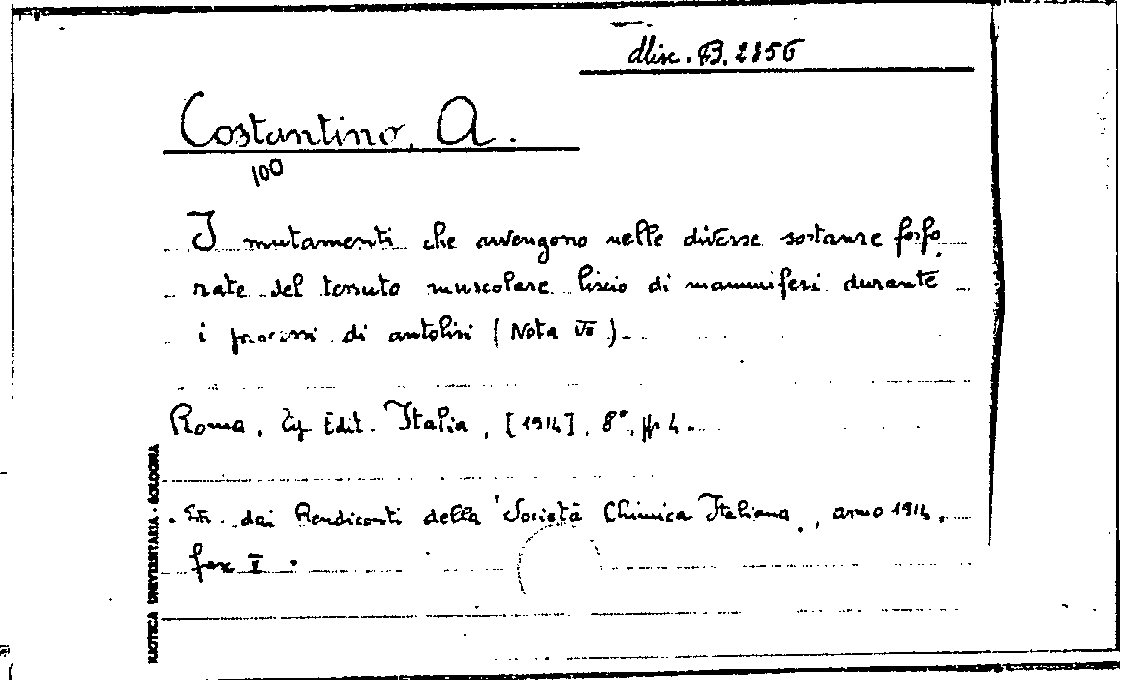 Misc. B. 2156
Costantino, A.
100
I mutamenti che avvengono nelle diverse sostanze fosfo-
rate del tessuto muscolare liscio di mammiferi durante
i processi di autolisi (Nota VII).
Roma, Tip Edit. Italia, [1914], 8°, pp 4.
Estr. dai Rendiconti della Società Chimica Italiana, anno 1914,
fasc V.
BLIOTECA UNIVERSITARIA - BOLOGNA